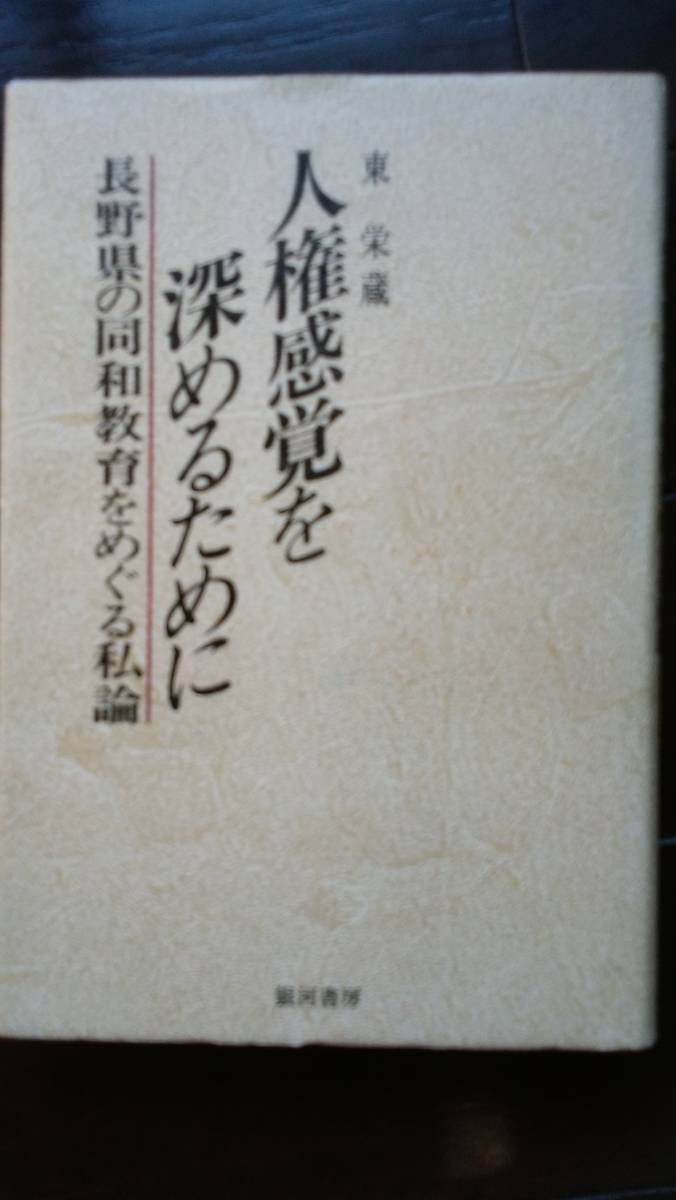 東栄蔵
人権感覚を
深めるために
長野県の同和教育をめぐる私論
銀河書房